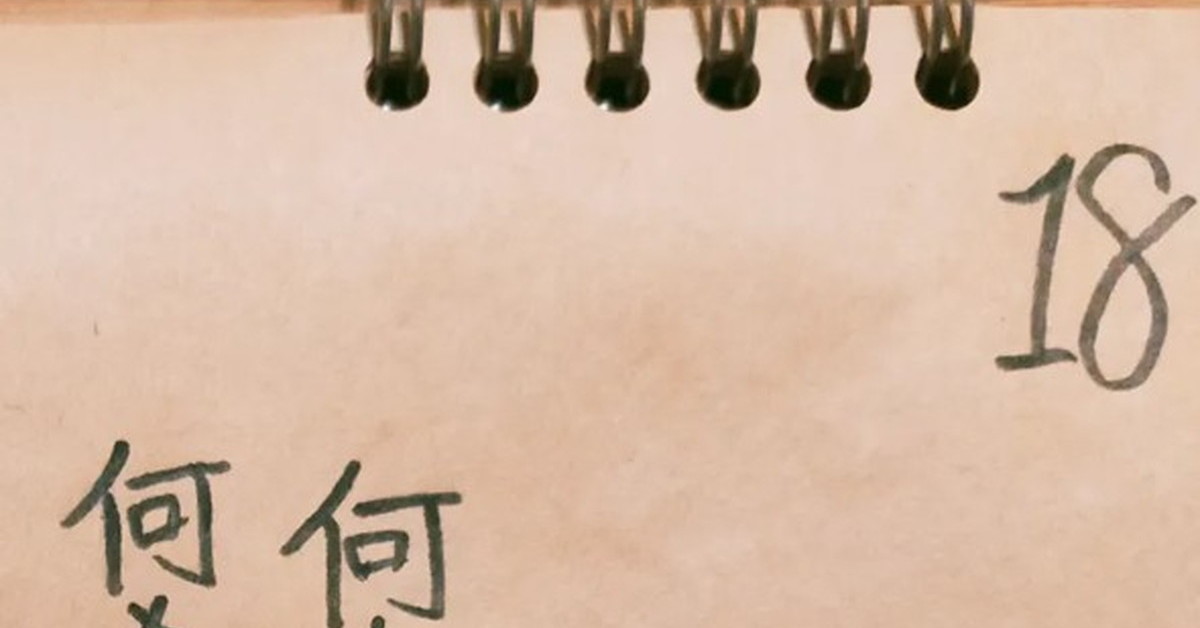 18
何 何